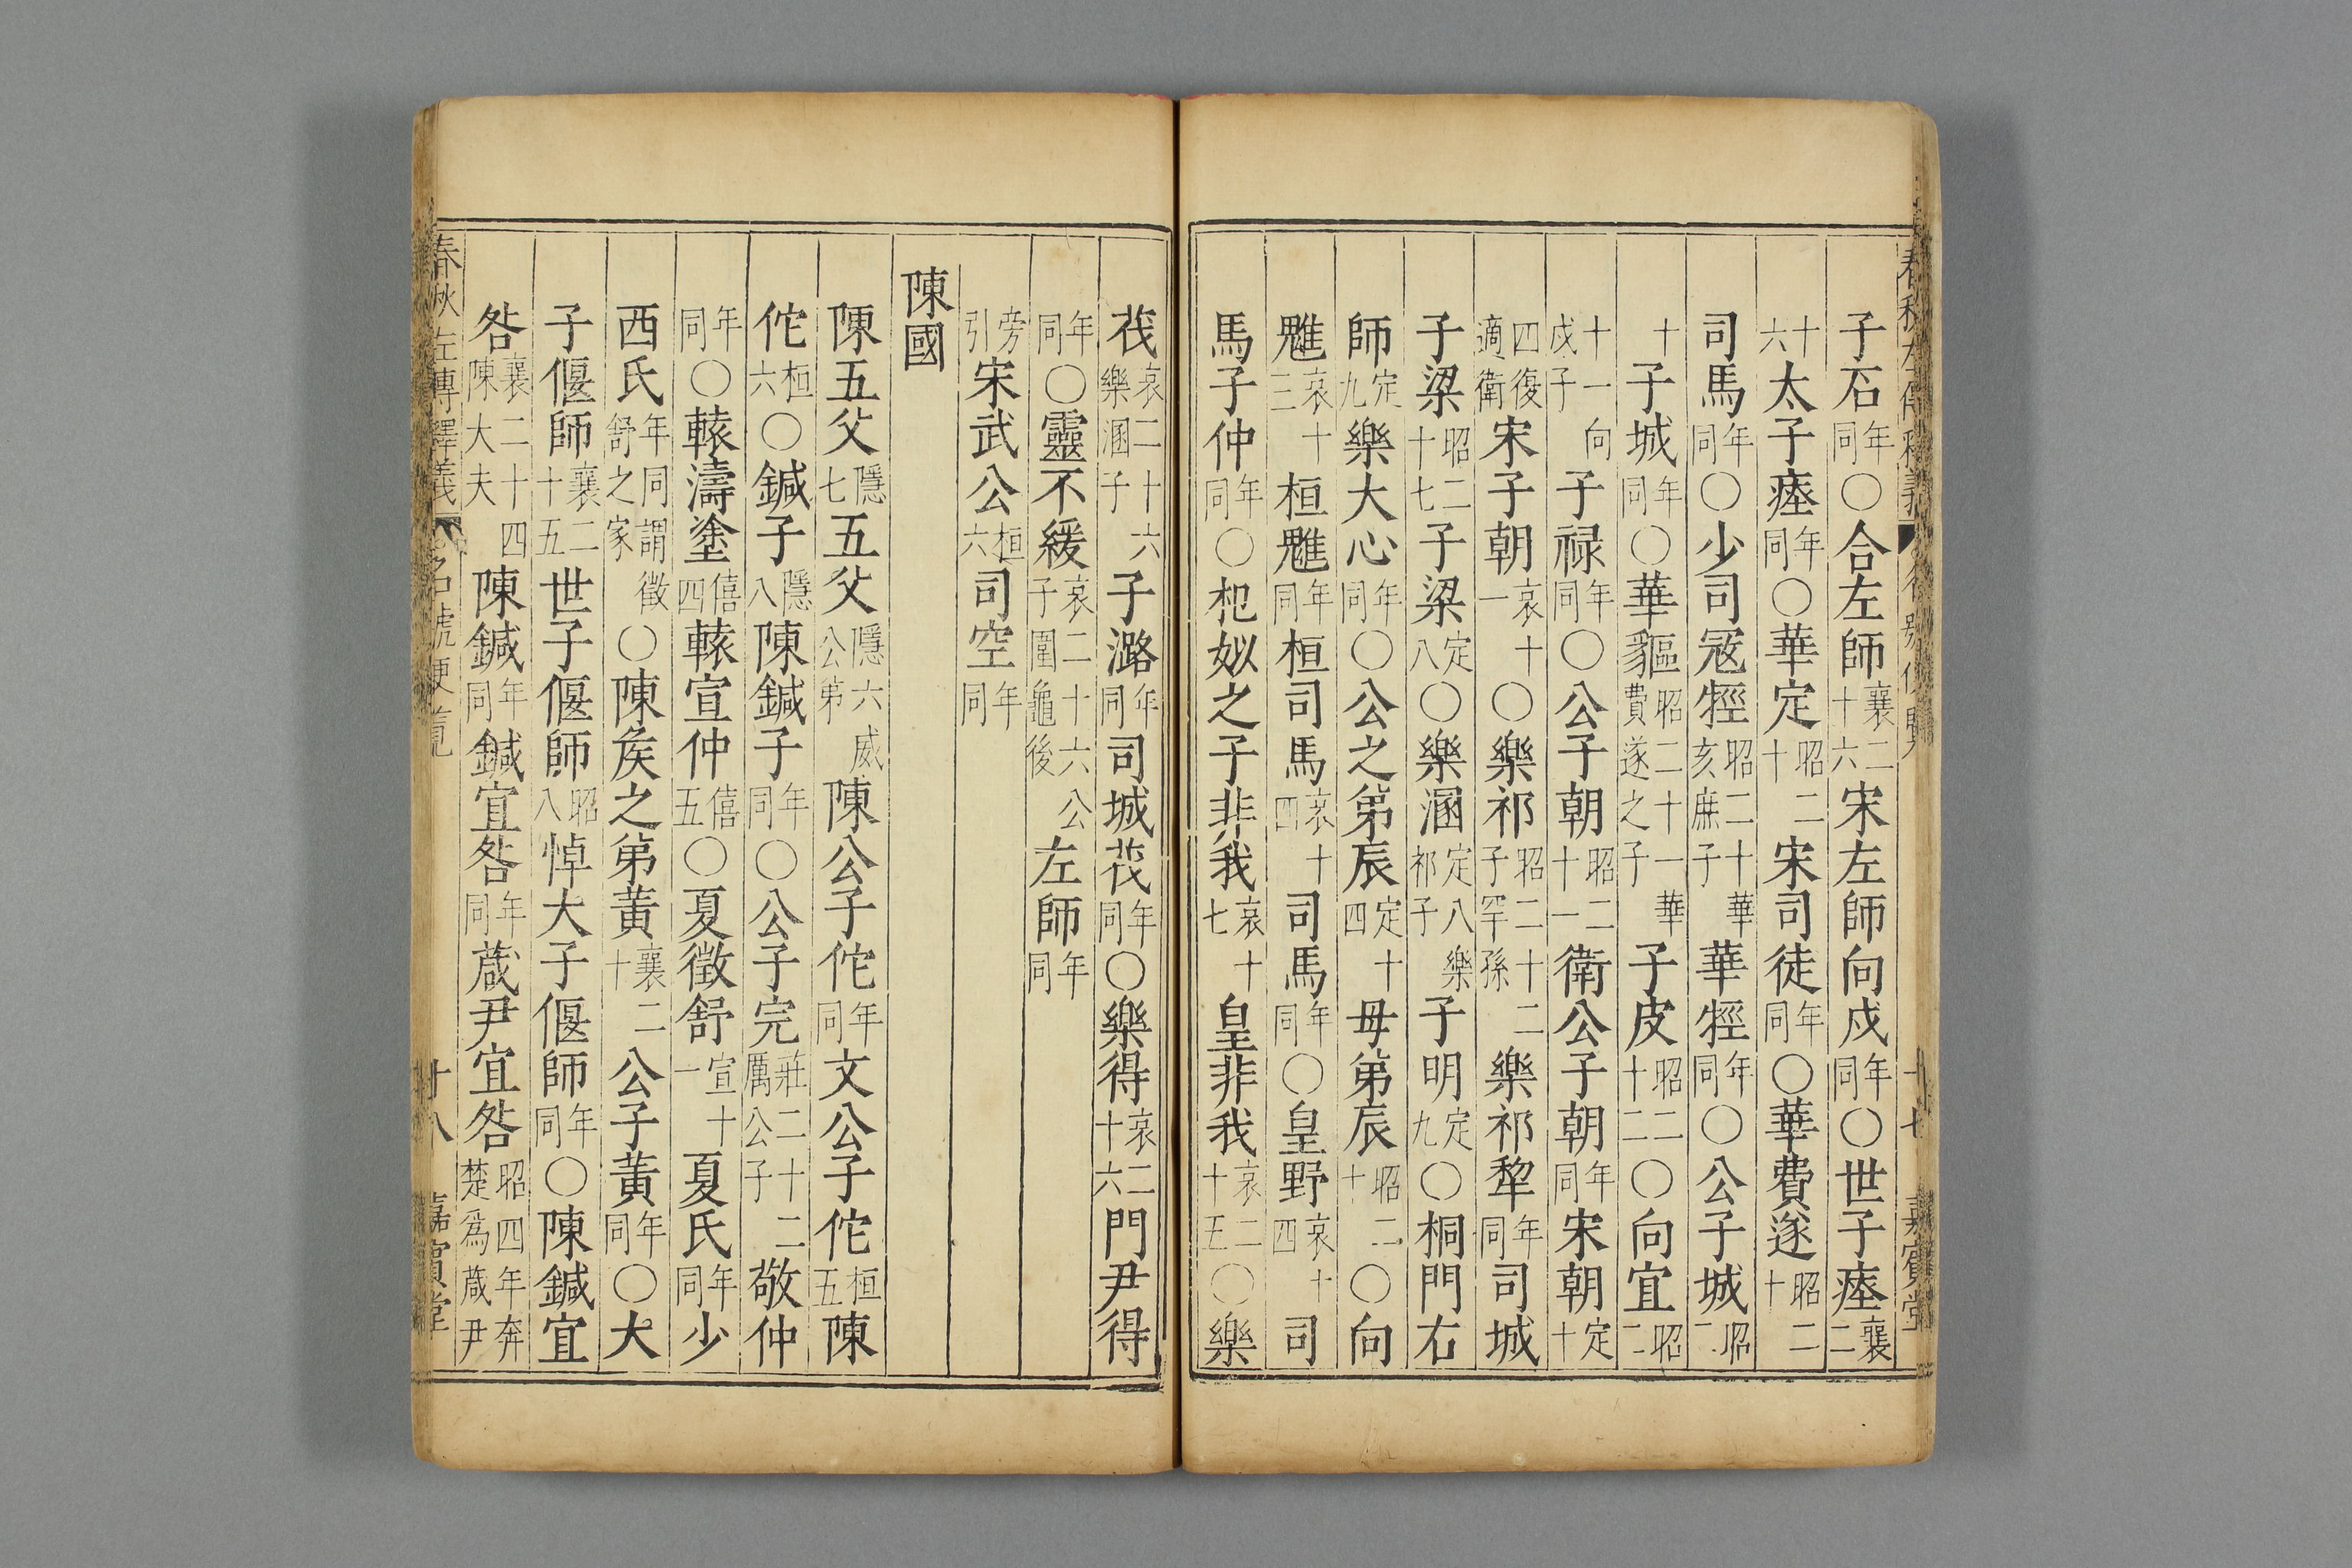 子石同年〇合左師襄二十六宋左師向戌同年〇世子痤襄二
十六太子痤同年〇華定昭二十宋司徒同年〇華費遂昭二十
司馬同年〇少司冦牼昭二十華亥庶子華牼同年〇公子城昭二
十子城同年〇華貙昭二十一華費遂之子子皮昭二十二〇向宜昭二
十一向戌子子禄同年〇公子朝昭二十一衛公子朝同年宋朝定十
四復適衛宋子朝哀十一〇樂祁昭二十二子罕孫樂祁犂同年司城
子梁昭二十七子梁定八〇樂溷定八樂祁子子明定九〇桐門右
師定九樂大心同年〇公之第辰定十四母第辰昭二十〇向
魋哀十二桓魋同年桓司馬哀十四司馬同年〇皇野哀十四司
馬子仲同年〇杞姒之子非我哀十七皇非我哀二十五〇樂
茷哀二十六樂溷子子潞同年司城茷同年〇樂得哀二十六門尹得
同年〇靈不緩哀二十六公子圍龜後左師同年
旁引宋武公桓六司空同年
陳國
陳五父隱七五父隱六公第威陳公子佗同年文公子佗桓五陳
佗桓六〇鍼子隱八陳鍼子同年〇公子完莊二十二厲公子敬仲
同年〇轅濤塗僖四轅宣仲僖五〇夏徵舒宣十一夏氏同年少
西氏同年謂徵舒之家〇陳矦之第黃襄二十公子黃同年〇大
子偃師襄二十五世子偃師昭八悼大子偃師同年〇陳鍼宜
咎襄二十四陳大夫陳鍼同年鍼宜咎同年葴尹宜咎昭四年奔楚爲葴尹
春秋左傳釋義
名號便覽
十八
嘉賓堂